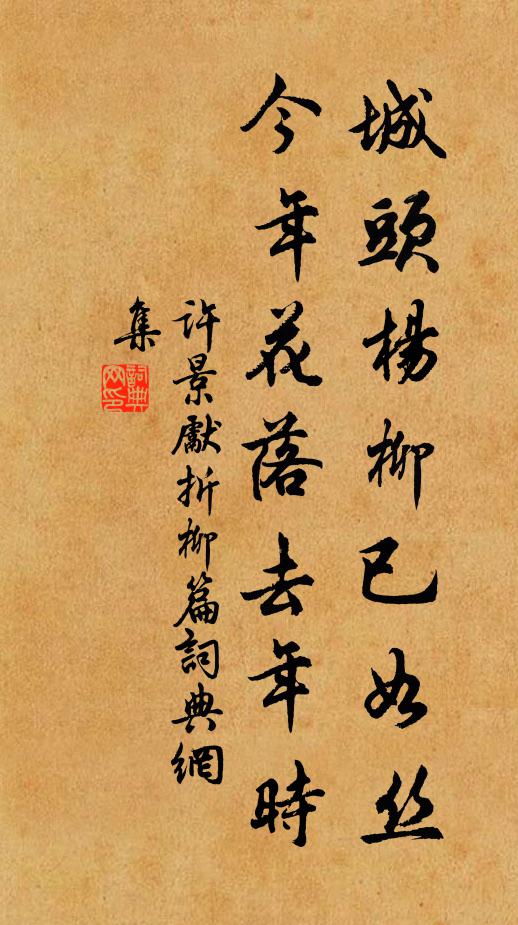 城頭楊柳已如丝
今年花落去年時
许景獻折柳篇詞典網
集
詞典网印